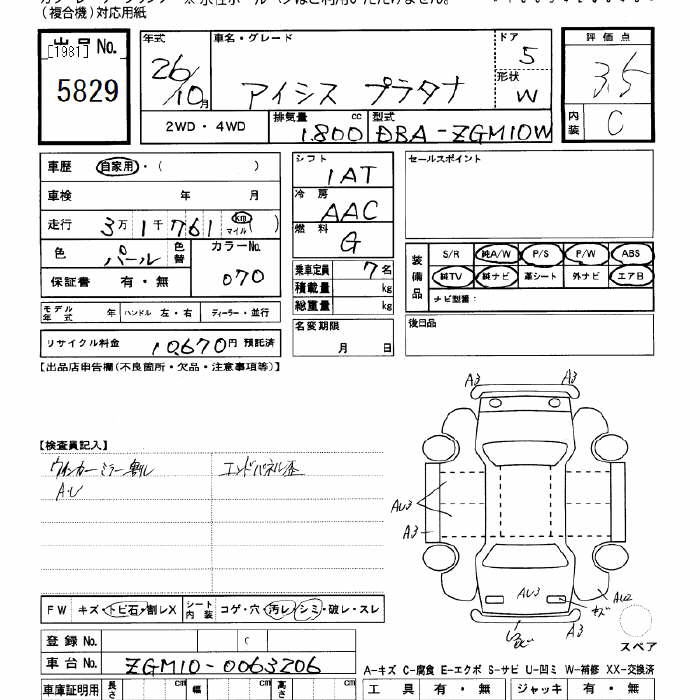 (複合機)対応用紙
出品 No.
[1981]
5829
年式
26/10月
車名・グレード
アイシス プラタナ
ドア
5
形状
W
評価点
3.5
内装
C
2WD・4WD
排気量
1800 cc
型式
DBA-ZGM10W
車歴 自家用・( )
車検 年 月
走行 3万1千761 km マイル( )
色 パール 色替
カラーNo.
070
保証書 有・無
モデル年式 年 ハンドル 左・右 ディーラー・並行
リサイクル料金 10,670円 預託済
シフト
1AT
冷房
AAC
燃料
G
乗車定員 7名
積載量 kg
総重量 kg
名変期限
月 日
セールスポイント
装備品
S/R 純A/W P/S P/W ABS
純TV 純ナビ 革シート 外ナビ エアB
ナビ型番:
後日品
【出品店申告欄(不良箇所・欠品・注意事項等)】
【検査員記入】
ウインカーミラー割レ
AU
エンドパネル歪
A3 A3
AU3
A3
AU3
キズ
AU2
A3
スペア
FW キズ・トビ石・割レX
シート内装 コゲ・穴・汚レ・シミ・破レ・スレ
登録 No.
車台 No. ZGM10-0063206
A-キズ C-腐食 E-エクボ S-サビ U-凹ミ W-補修 XX-交換済
車庫証明用 長さ cm 幅 cm 高さ cm
工具 有・無 ジャッキ 有・無